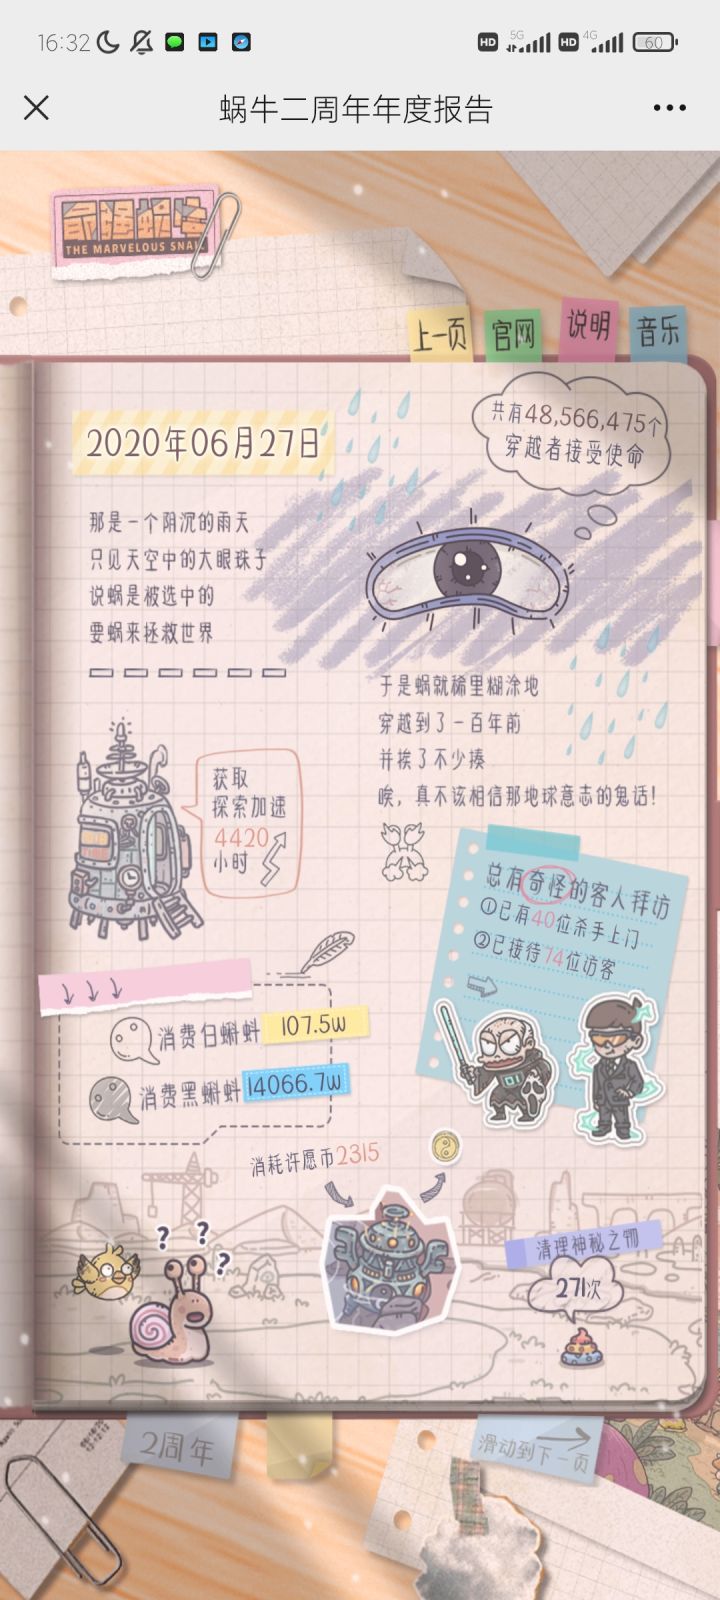 16:32
HD 5G HD 4G 60
蜗牛二周年年度报告
最强蜗牛
THE MARVELOUS SNAIL
上一页 官网 说明 音乐
共有48,566,475个
穿越者接受使命
2020年06月27日
那是一个阴沉的雨天
只见天空中的大眼珠子
说蜗是被选中的
要蜗来拯救世界
于是蜗就稀里糊涂地
穿越到了一百年前
并挨了不少揍
唉，真不该相信那地球意志的鬼话！
获取
探索加速
4420
小时
总有奇怪的客人拜访
①已有40位杀手上门
②已接待74位访客
消费白蝌蚪 107.5w
消费黑蝌蚪 14066.7w
消耗许愿币2315
? ? ?
清理神秘之物
271次
2周年
滑动到下一页